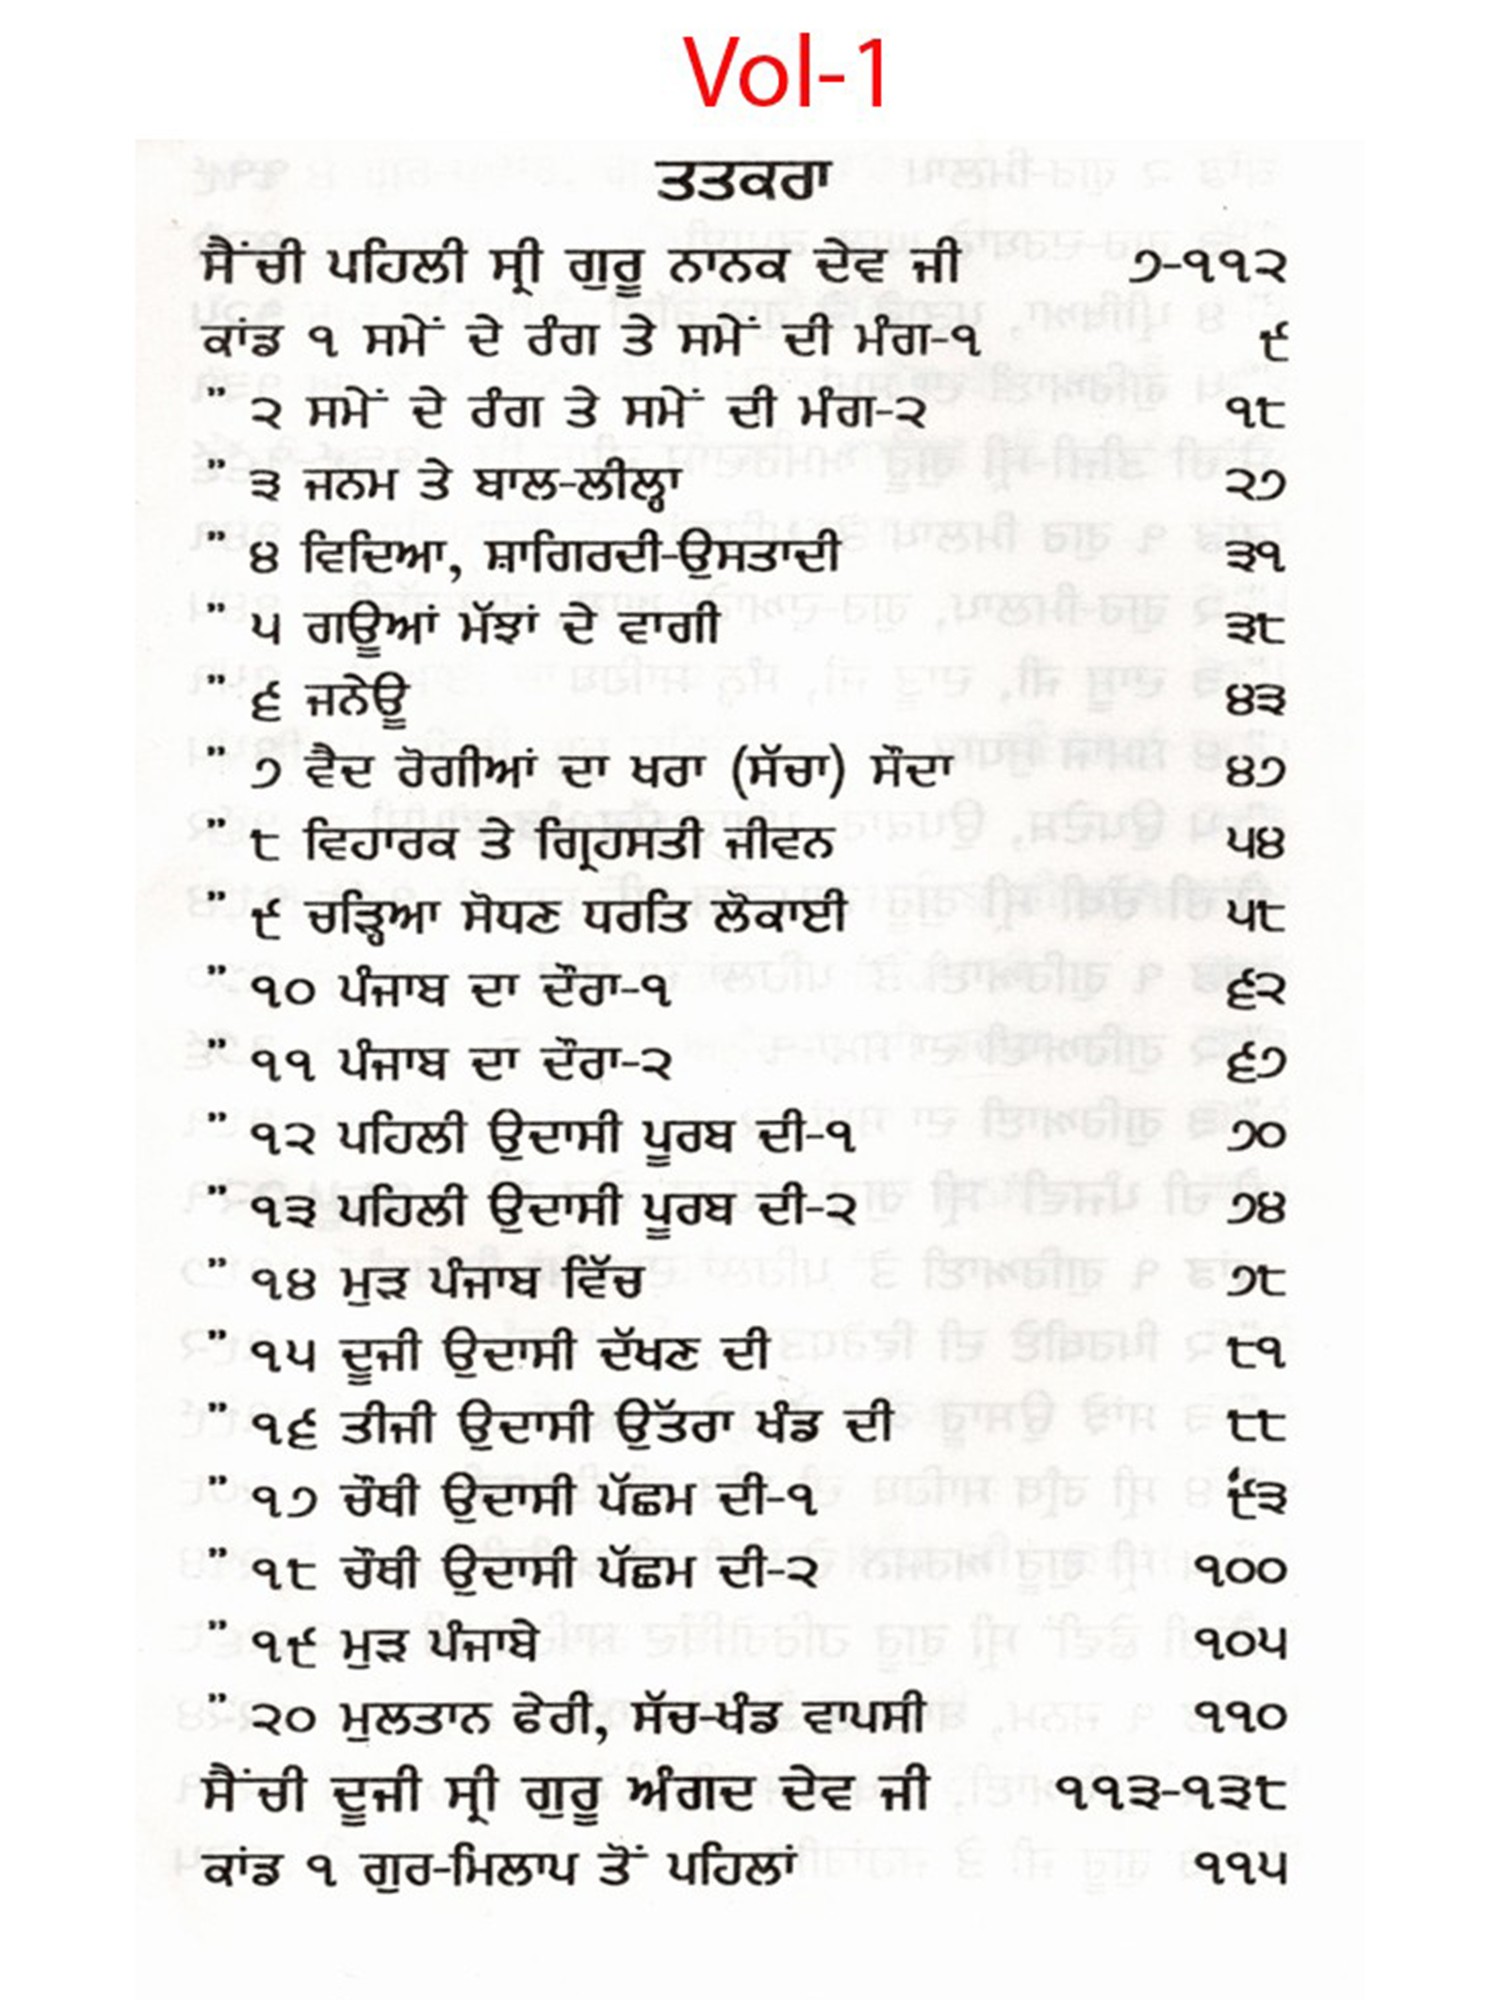 Vol-1
ਤਤਕਰਾ
ਸੈਂਚੀ ਪਹਿਲੀ ਸ੍ਰੀ ਗੁਰੂ ਨਾਨਕ ਦੇਵ ਜੀ ੭-੧੧੨
ਕਾਂਡ ੧ ਸਮੇਂ ਦੇ ਰੰਗ ਤੇ ਸਮੇਂ ਦੀ ਮੰਗ-੧ ੯
" ੨ ਸਮੇਂ ਦੇ ਰੰਗ ਤੇ ਸਮੇਂ ਦੀ ਮੰਗ-੨ ੧੮
" ੩ ਜਨਮ ਤੇ ਬਾਲ-ਲੀਲ੍ਹਾ ੨੭
" ੪ ਵਿਦਿਆ, ਸ਼ਾਗਿਰਦੀ-ਉਸਤਾਦੀ ੩੧
" ੫ ਗਊਆਂ ਮੱਝਾਂ ਦੇ ਵਾਗੀ ੩੮
" ੬ ਜਨੇਊ ੪੩
" ੭ ਵੈਦ ਰੋਗੀਆਂ ਦਾ ਖਰਾ (ਸੱਚਾ) ਸੌਦਾ ੪੭
" ੮ ਵਿਹਾਰਕ ਤੇ ਗ੍ਰਿਹਸਤੀ ਜੀਵਨ ੫੪
" ੯ ਚੜ੍ਹਿਆ ਸੋਧਣ ਧਰਤਿ ਲੋਕਾਈ ੫੮
" ੧੦ ਪੰਜਾਬ ਦਾ ਦੌਰਾ-੧ ੬੨
" ੧੧ ਪੰਜਾਬ ਦਾ ਦੌਰਾ-੨ ੬੭
" ੧੨ ਪਹਿਲੀ ਉਦਾਸੀ ਪੂਰਬ ਦੀ-੧ ੭੦
" ੧੩ ਪਹਿਲੀ ਉਦਾਸੀ ਪੂਰਬ ਦੀ-੨ ੭੪
" ੧੪ ਮੁੜ ਪੰਜਾਬ ਵਿੱਚ ੭੮
" ੧੫ ਦੂਜੀ ਉਦਾਸੀ ਦੱਖਣ ਦੀ ੮੧
" ੧੬ ਤੀਜੀ ਉਦਾਸੀ ਉੱਤਰਾ ਖੰਡ ਦੀ ੮੮
" ੧੭ ਚੌਥੀ ਉਦਾਸੀ ਪੱਛਮ ਦੀ-੧ ੯੩
" ੧੮ ਚੌਥੀ ਉਦਾਸੀ ਪੱਛਮ ਦੀ-੨ ੧੦੦
" ੧੯ ਮੁੜ ਪੰਜਾਬੇ ੧੦੫
" ੨੦ ਮੁਲਤਾਨ ਫੇਰੀ, ਸੱਚ-ਖੰਡ ਵਾਪਸੀ ੧੧੦
ਸੈਂਚੀ ਦੂਜੀ ਸ੍ਰੀ ਗੁਰੂ ਅੰਗਦ ਦੇਵ ਜੀ ੧੧੩-੧੩੮
ਕਾਂਡ ੧ ਗੁਰ-ਮਿਲਾਪ ਤੋਂ ਪਹਿਲਾਂ ੧੧੫